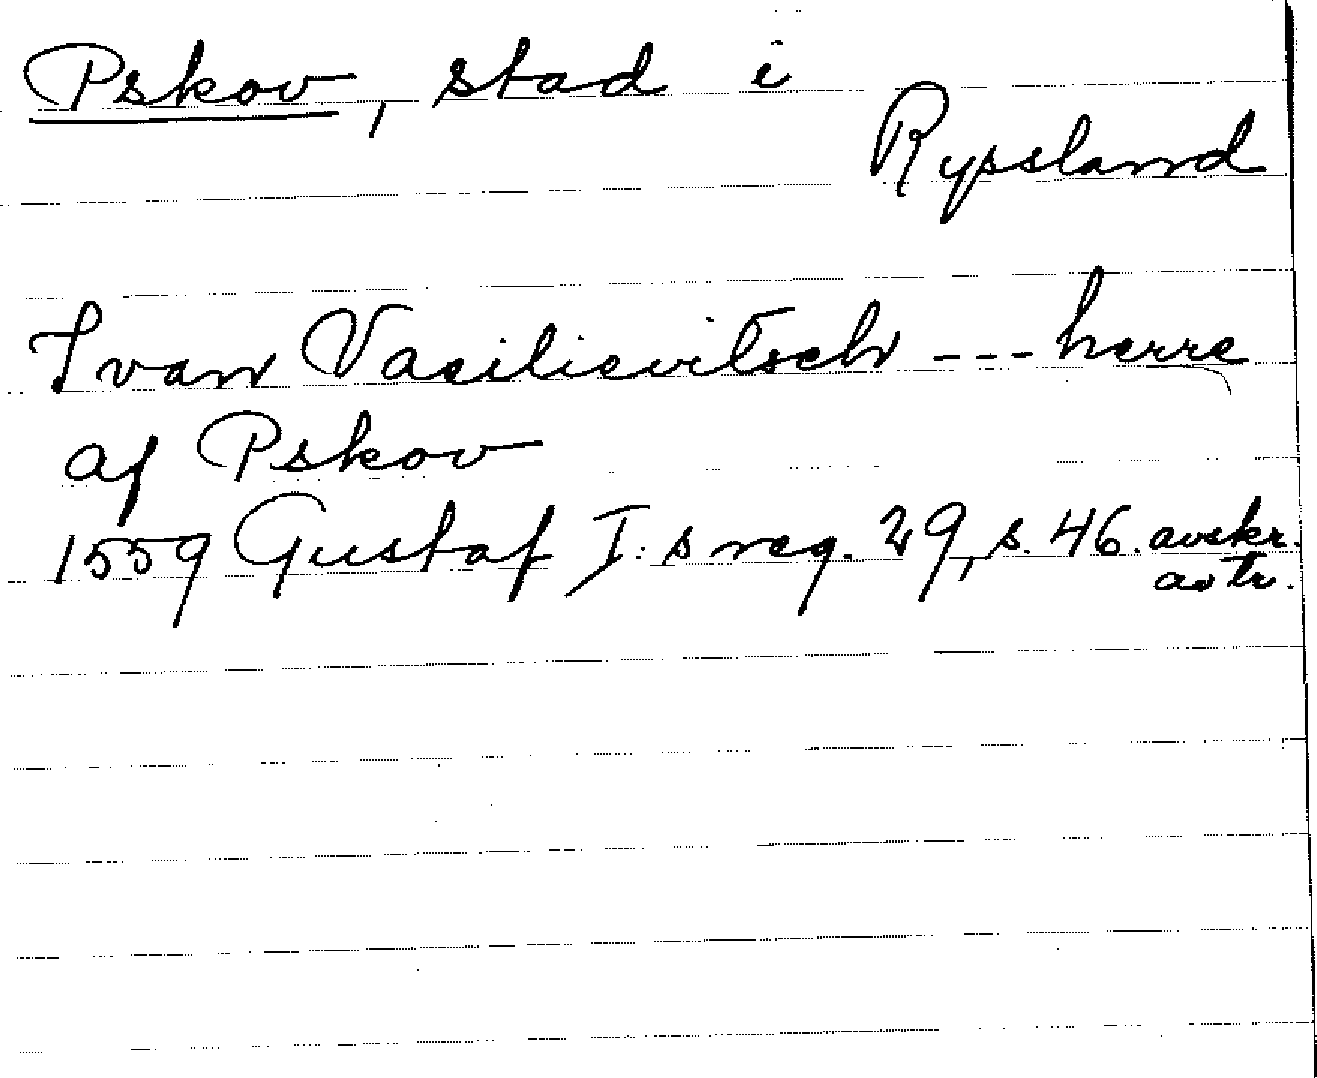 Pskov, stad i
Ryssland
Ivan Vasilievitsch --- herre
af Pskov
1559 Gustaf I:s reg. 29, s. 46. avskr.
av tr.